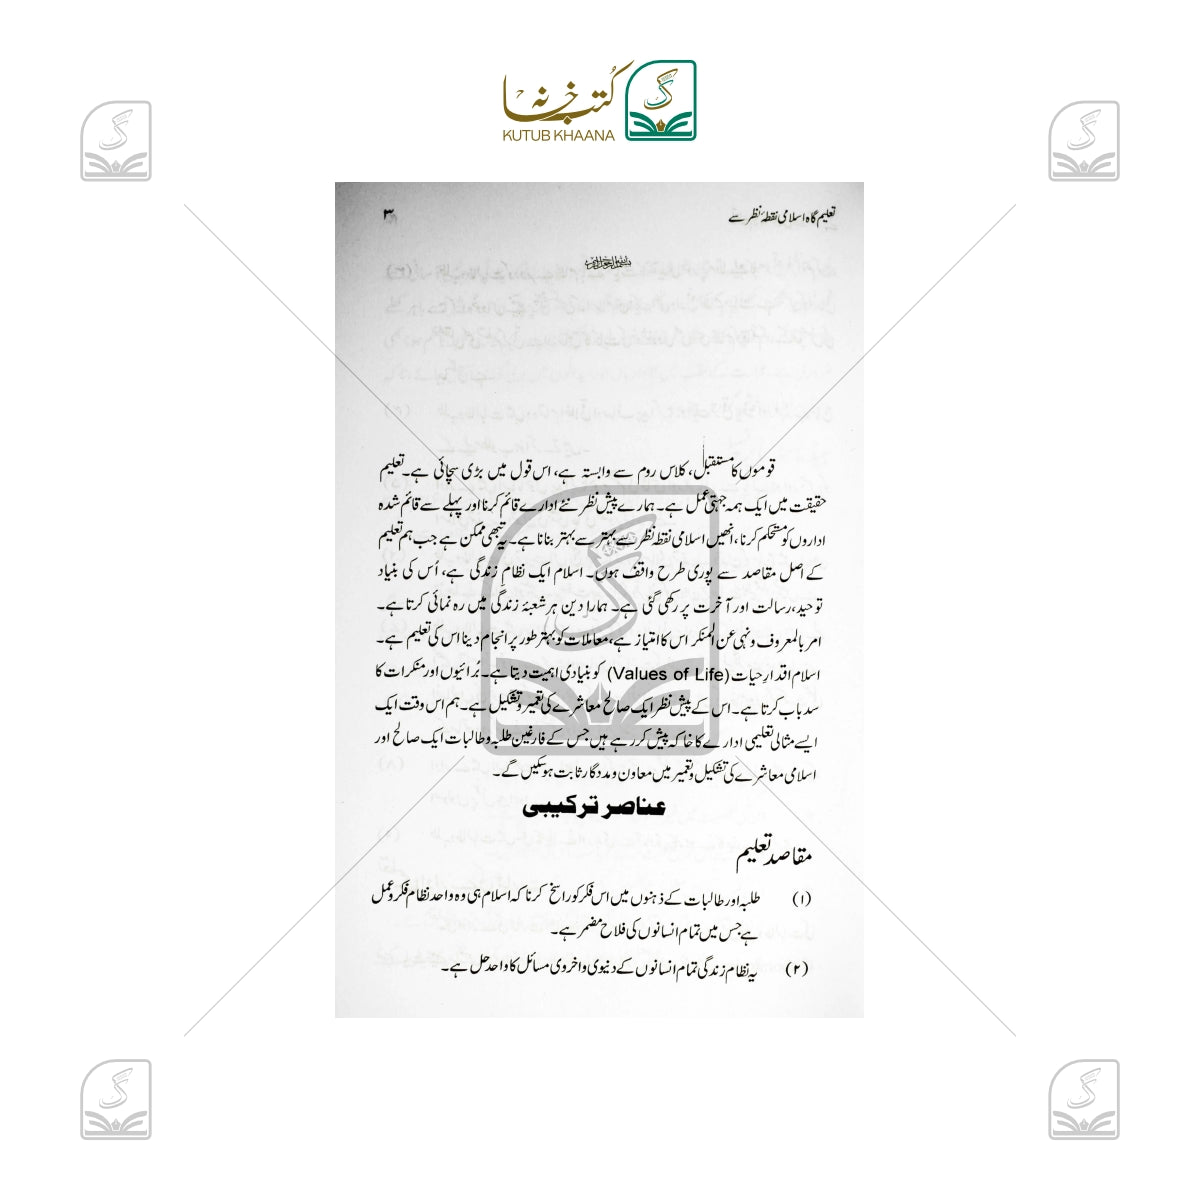 کتب خانہ
KUTUB KHAANA
تعلیم گاہ اسلامی نقطۂ نظر سے ۳
بسم اللہ الرحمن الرحیم
قوموں کا مستقبل، کلاس روم سے وابستہ ہے، اس قول میں بڑی سچائی ہے۔ تعلیم
حقیقت میں ایک ہمہ جہتی عمل ہے۔ ہمارے پیش نظر نئے ادارے قائم کرنا اور پہلے سے قائم شدہ
اداروں کو مستحکم کرنا، انھیں اسلامی نقطہ نظر سے بہتر سے بہتر بنانا ہے۔ یہ تبھی ممکن ہے جب ہم تعلیم
کے اصل مقاصد سے پوری طرح واقف ہوں۔ اسلام ایک نظام زندگی ہے، اُس کی بنیاد
توحید، رسالت اور آخرت پر رکھی گئی ہے۔ ہمارا دین ہر شعبۂ زندگی میں رہ نمائی کرتا ہے۔
امر بالمعروف و نہی عن المنکر اس کا امتیاز ہے، معاملات کو بہتر طور پر انجام دینا اس کی تعلیم ہے۔
اسلام اقدارِ حیات (Values of Life) کو بنیادی اہمیت دیتا ہے۔ بُرائیوں اور منکرات کا
سد باب کرتا ہے۔ اس کے پیش نظر ایک صالح معاشرے کی تعمیر و تشکیل ہے۔ ہم اس وقت ایک
ایسے مثالی تعلیمی ادارے کا خاکہ پیش کر رہے ہیں جس کے فارغین طلبہ و طالبات ایک صالح اور
اسلامی معاشرے کی تشکیل و تعمیر میں معاون و مددگار ثابت ہو سکیں گے۔
عناصر ترکیبی
مقاصد تعلیم
(۱) طلبہ اور طالبات کے ذہنوں میں اس فکر کو راسخ کرنا کہ اسلام ہی وہ واحد نظام فکر و عمل
ہے جس میں تمام انسانوں کی فلاح مضمر ہے۔
(۲) یہ نظام زندگی تمام انسانوں کے دنیوی و اخروی مسائل کا واحد حل ہے۔